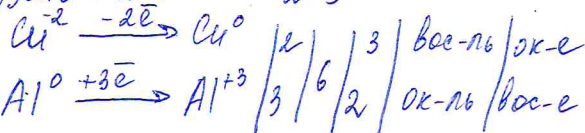 Cu⁻² —-2ē→ Cu⁰ | 2 | | 3 | вос-ль | ок-е
Al⁰ —+3ē→ Al⁺³ | 3 | 6 | 2 | ок-ль | вос-е